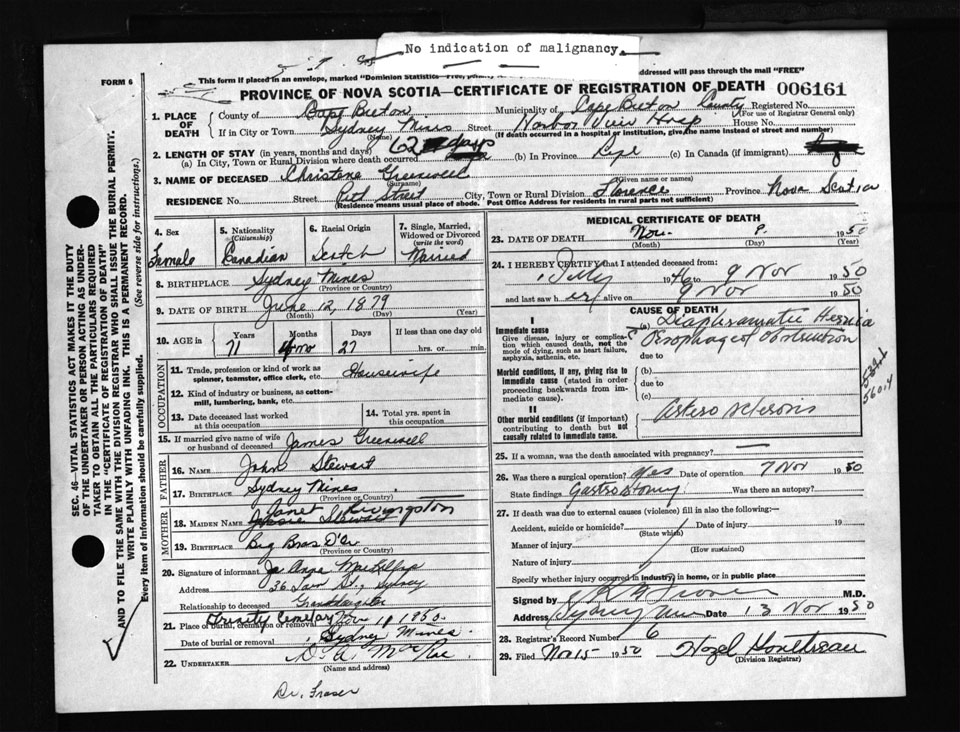 No indication of malignancy
FORM 6
This form if placed in an envelope, marked "Dominion Statistics—Free, addressed will pass through the mail "FREE"
PROVINCE OF NOVA SCOTIA—CERTIFICATE OF REGISTRATION OF DEATH 006161
1. PLACE OF DEATH
County of Cape Breton Municipality of Cape Breton County Registered No.
(For use of Registrar General only)
If in City or Town Sydney Mines Street Harbor View Hosp House No.
(Name) (If death occurred in a hospital or institution, give the name instead of street and number)
2. LENGTH OF STAY (in years, months and days) 62 days
(a) In City, Town or Rural Division where death occurred (b) In Province Life (c) In Canada (if immigrant)
3. NAME OF DECEASED Christena Greenwell
(Surname) (Given name or names)
RESIDENCE No. Street Pitt Street City, Town or Rural Division Florence Province Nova Scotia
(Residence means usual place of abode. Post Office Address for residents in rural parts not sufficient)
4. Sex
Female
5. Nationality
(Citizenship)
Canadian
6. Racial Origin
Scotch
7. Single, Married,
Widowed or Divorced
(write the word)
Married
8. BIRTHPLACE Sydney Mines
(Province or Country)
9. DATE OF BIRTH June 12, 1879
(Month) (Day) (Year)
10. AGE in
Years Months Days If less than one day old
71 4 mo 27 hrs. or min.
OCCUPATION
11. Trade, profession or kind of work as
spinner, teamster, office clerk, etc. Housewife
12. Kind of industry or business, as cotton-
mill, lumbering, bank, etc.
13. Date deceased last worked
at this occupation
14. Total yrs. spent in
this occupation
15. If married give name of wife
or husband of deceased James Greenwell
FATHER
16. NAME John Stewart
17. BIRTHPLACE Sydney Mines
(Province or Country)
MOTHER
Janet Livingston
18. MAIDEN NAME
19. BIRTHPLACE Big Bras D'Or
(Province or Country)
20. Signature of informant
Address 36 St., Sydney
Relationship to deceased Granddaughter
21. Place of burial, cremation or removal Trinity Cemetery
Date of burial or removal Nov 11 1950
Sydney Mines
22. UNDERTAKER D. A. McRae
(Name and address)
Dr. Fraser
MEDICAL CERTIFICATE OF DEATH
23. DATE OF DEATH Nov. 9. 1950
(Month) (Day) (Year)
24. I HEREBY CERTIFY that I attended deceased from:
July 1946 to 9 Nov 1950
and last saw her alive on 9 Nov 1950
CAUSE OF DEATH
I
Immediate cause
Give disease, injury or complication
which caused death, not the
mode of dying, such as heart failure,
asphyxia, asthenia, etc.
(a) Diaphramatic Hernia
Oesophageal obstruction
due to
Morbid conditions, if any, giving rise to
immediate cause (stated in order
proceeding backwards from immediate
cause)
(b)
due to
(c)
560.4
II
Other morbid conditions (if important)
contributing to death but not
causally related to immediate cause.
25. If a woman, was the death associated with pregnancy?
26. Was there a surgical operation? yes Date of operation 7 Nov 1950
State findings Gastrostomy Was there an autopsy?
27. If death was due to external causes (violence) fill in also the following:—
Accident, suicide or homicide? Date of injury 19
(State which)
Manner of injury
(How sustained)
Nature of injury
Specify whether injury occurred in industry, in home, or in public place
Signed by M.D.
Address Sydney Mines Date 13 Nov 1950
28. Registrar's Record Number 6
29. Filed Nov 15 1950 Hazel
(Division Registrar)
SEC. 46—VITAL STATISTICS ACT MAKES IT THE DUTY
OF THE UNDERTAKER OR PERSON ACTING AS UNDER-
TAKER TO OBTAIN ALL THE PARTICULARS REQUIRED
IN THE "CERTIFICATE OF REGISTRATION OF DEATH"
AND TO FILE THE SAME WITH THE DIVISION REGISTRAR WHO SHALL ISSUE THE BURIAL PERMIT.
WRITE PLAINLY WITH UNFADING INK. THIS IS A PERMANENT RECORD.
Every item of information should be carefully supplied. (See reverse side for instructions.)